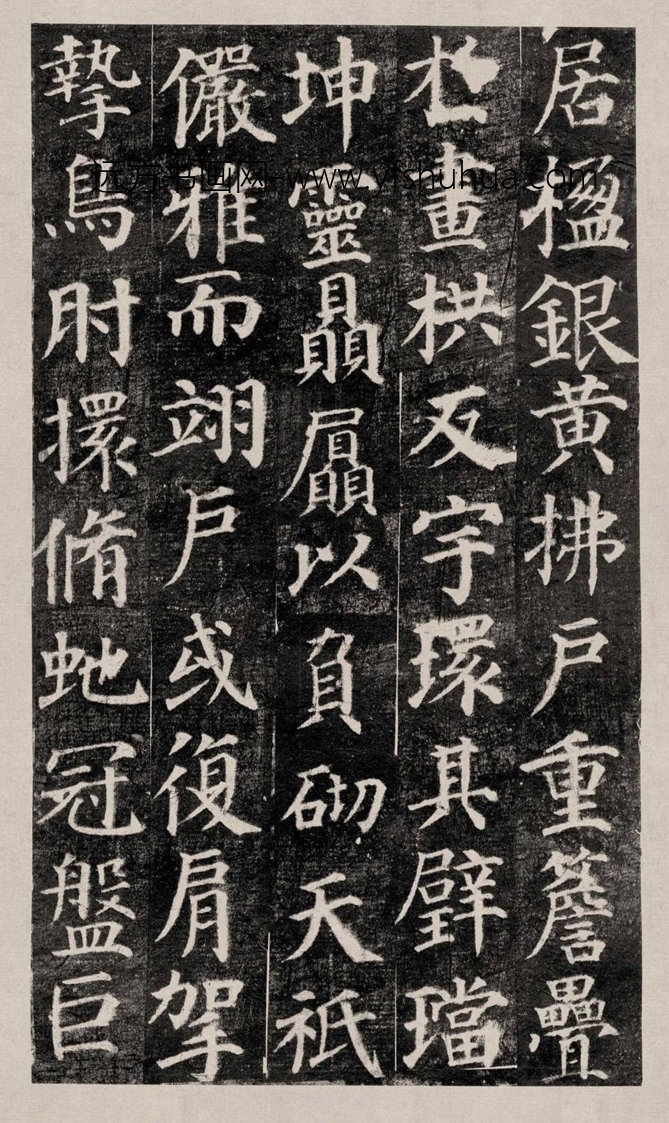 居楹銀黄拂戶重簷疊
栱畫栱反宇環其壁璫
坤靈贔屭以負砌天祇
儼雅而翊戶或復肩挐
摯鳥肘擐脩虵冠盤巨
远方书画网-www.yfshuhua.com